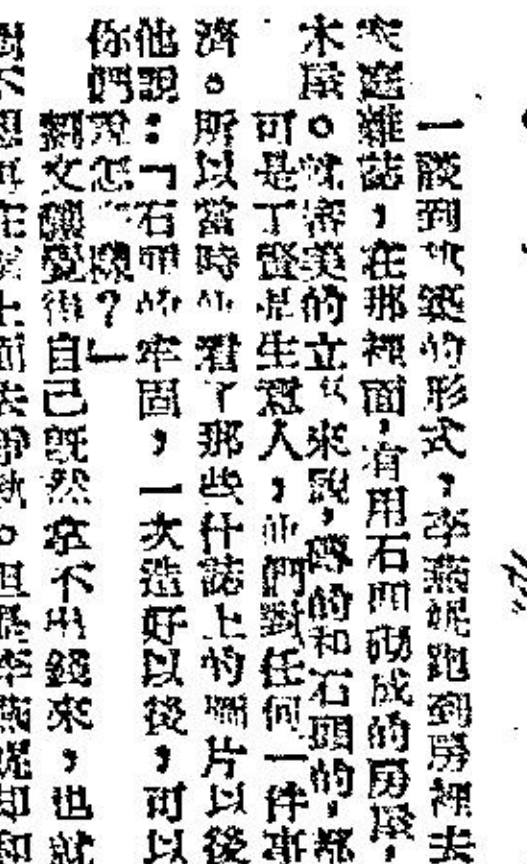 一談到建築的形式，李燕妮跑到房裡去
家庭雜誌，在那裡面，有用石頭砌成的房屋，
木屋。就審美的立場來說，磚的和石頭的，都
可是丁 是生意人，他們對任何一件事
濟。所以當時他看了那些什誌上的圖片以後
他說：「石頭的牢固，一次造好以後，可以
你們說怎麼樣？」
劉文 覺得自己既然拿不出錢來，也就
不想再在 上面去 。但是李燕妮却和